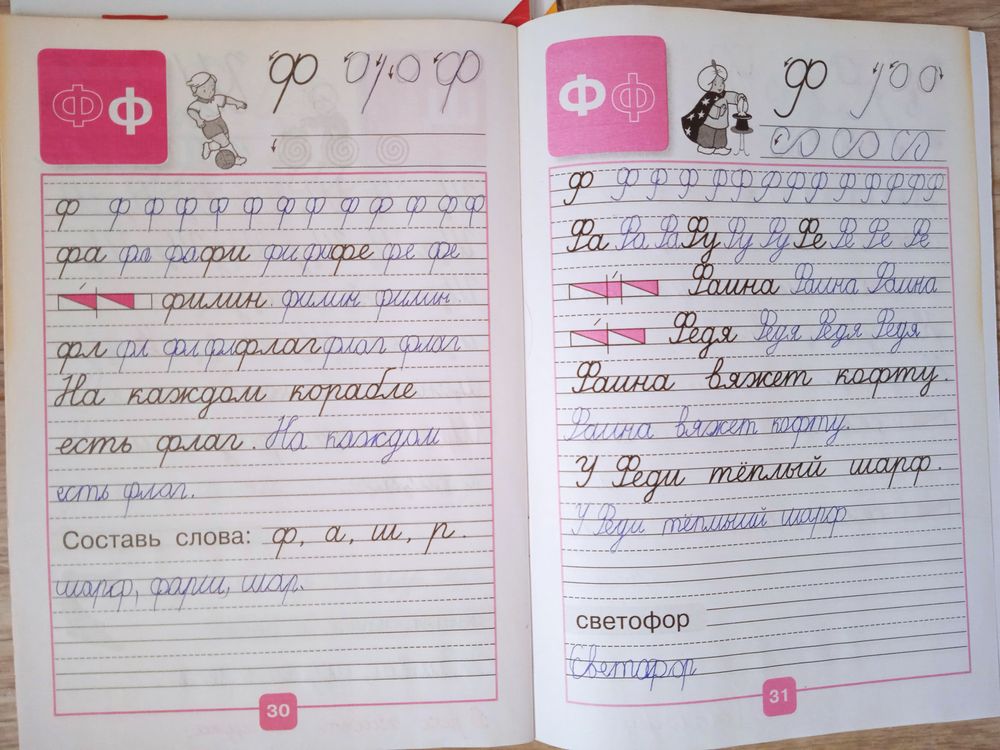 Ф ф
ф
ф ф ф ф ф ф ф ф ф ф ф ф ф
фа фа фа фи фи фи фе фе фе
филин. филин филин.
фл фл фл фл флаг флаг флаг
На каждом корабле
есть флаг. На каждом
есть флаг.
Составь слова: ф, а, ш, р.
шарф, фарш, шар.
30
Ф ф
Ф
Ф Ф Ф Ф Ф Ф Ф Ф Ф Ф Ф Ф Ф
Фа Фа Фа Фу Фу Фу Фе Фе Фе Фе
Фаина Фаина Фаина
Федя Федя Федя Федя
Фаина вяжет кофту.
Фаина вяжет кофту.
У Феди тёплый шарф.
У Феди тёплый шарф
светофор
Светофор
31